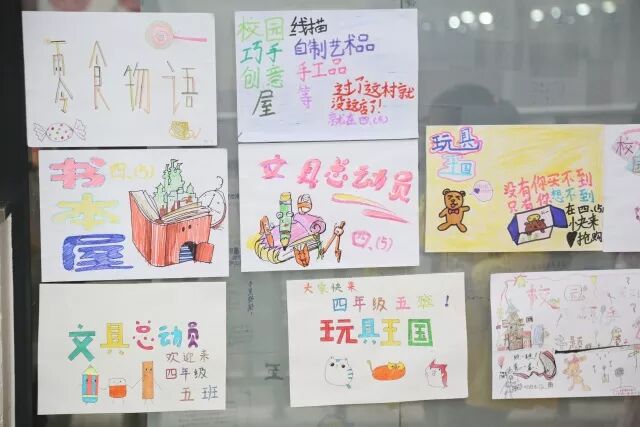 零食物语
校园 线描
巧手 自制艺术品
创意 手工品
屋 等
过了这村就
没这店了!
就在四.(5)
书本屋
四.(5)
文具总动员
四.(5)
玩具
王国
没有你买不到
只有你想不到
在四.(5)
小快来
抢购
文具总动员
欢迎来
四年级
五班
大家快来
四年级五班!
玩具王国
校园